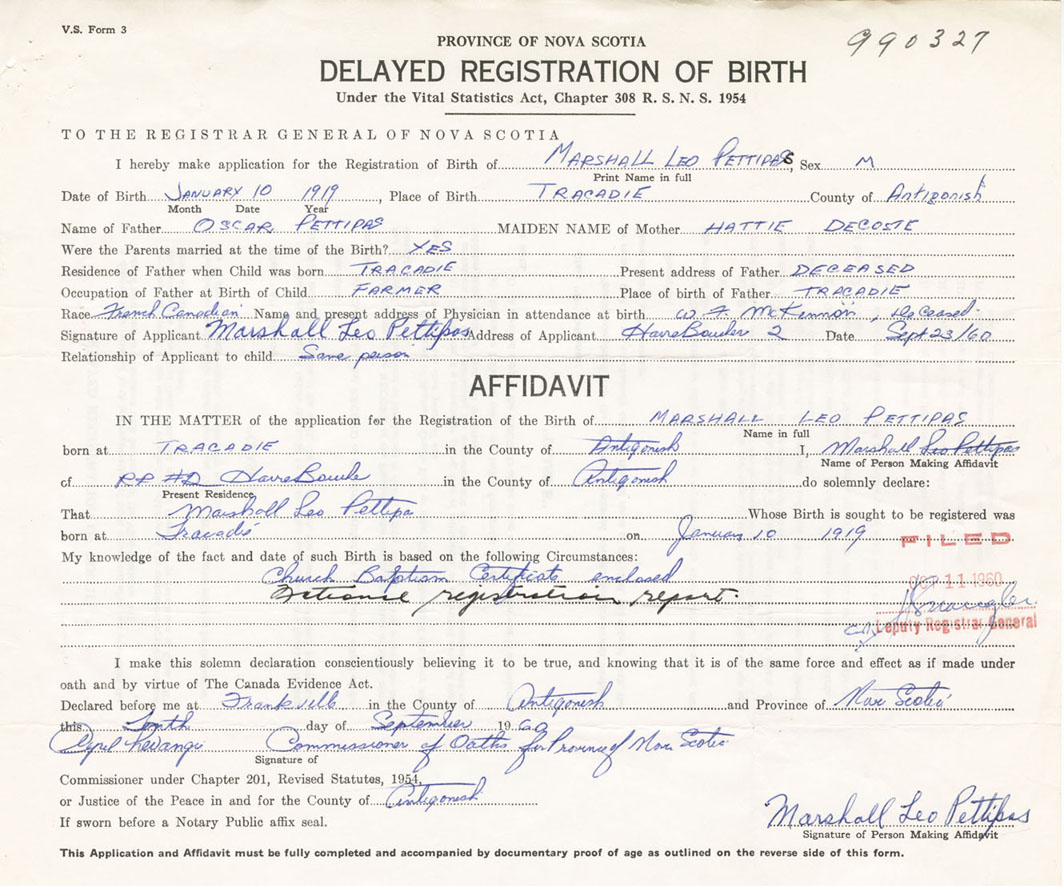 V.S. Form 3
990327
PROVINCE OF NOVA SCOTIA
DELAYED REGISTRATION OF BIRTH
Under the Vital Statistics Act, Chapter 308 R. S. N. S. 1954
TO THE REGISTRAR GENERAL OF NOVA SCOTIA
I hereby make application for the Registration of Birth of MARSHALL LEO PETTIPAS, Sex M
Print Name in full
Date of Birth JANUARY 10 1919, Place of Birth TRACADIE County of Antigonish
Month Date Year
Name of Father OSCAR PETTIPAS MAIDEN NAME of Mother HATTIE DECOSTE
Were the Parents married at the time of the Birth? YES
Residence of Father when Child was born TRACADIE Present address of Father DECEASED
Occupation of Father at Birth of Child FARMER Place of birth of Father TRACADIE
Race French Canadian Name and present address of Physician in attendance at birth W. F. McKinnon, deceased
Signature of Applicant Marshall Leo Pettipas Address of Applicant HavreBoucher 2 Date Sept 23/60
Relationship of Applicant to child Same person
AFFIDAVIT
IN THE MATTER of the application for the Registration of the Birth of MARSHALL LEO PETTIPAS
Name in full
born at TRACADIE in the County of Antigonish I, Marshall Leo Pettipas
Name of Person Making Affidavit
of RR #2 Havre Bouche in the County of Antigonish do solemnly declare:
Present Residence
That Marshall Leo Pettipa Whose Birth is sought to be registered was
born at Tracadie on January 10 1919
FILED
My knowledge of the fact and date of such Birth is based on the following Circumstances:
Church Baptism Certificate enclosed
11 1960
National registration report.
Deputy Registrar General
I make this solemn declaration conscientiously believing it to be true, and knowing that it is of the same force and effect as if made under
oath and by virtue of The Canada Evidence Act.
Declared before me at Frankville in the County of Antigonish and Province of Nova Scotia
this Tenth day of September 1960
Cyril Commissioner of Oaths for Province of Nova Scotia
Signature of
Commissioner under Chapter 201, Revised Statutes, 1954,
or Justice of the Peace in and for the County of Antigonish
If sworn before a Notary Public affix seal.
Marshall Leo Pettipas
Signature of Person Making Affidavit
This Application and Affidavit must be fully completed and accompanied by documentary proof of age as outlined on the reverse side of this form.